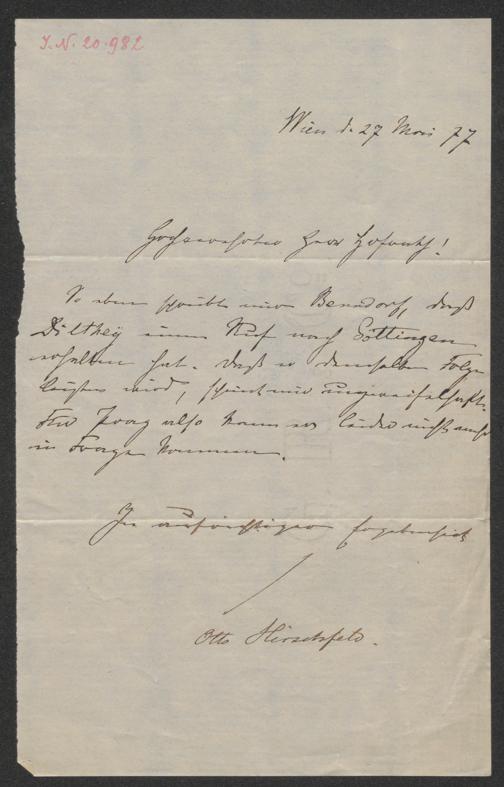 I. N. 20.982
Wien d. 27 Mai 77
Hochverehrter Herr Hofrath!
So eben schreibt mir Benndorf, daß
Dilthey einen Ruf nach Göttingen
erhalten hat. Daß er demselben Folge
leisten wird, scheint mir unzweifelhaft.
Für Prag also kann er leider nicht mehr
in Frage kommen.
In aufrichtiger Ergebenheit
Otto Hirschfeld.